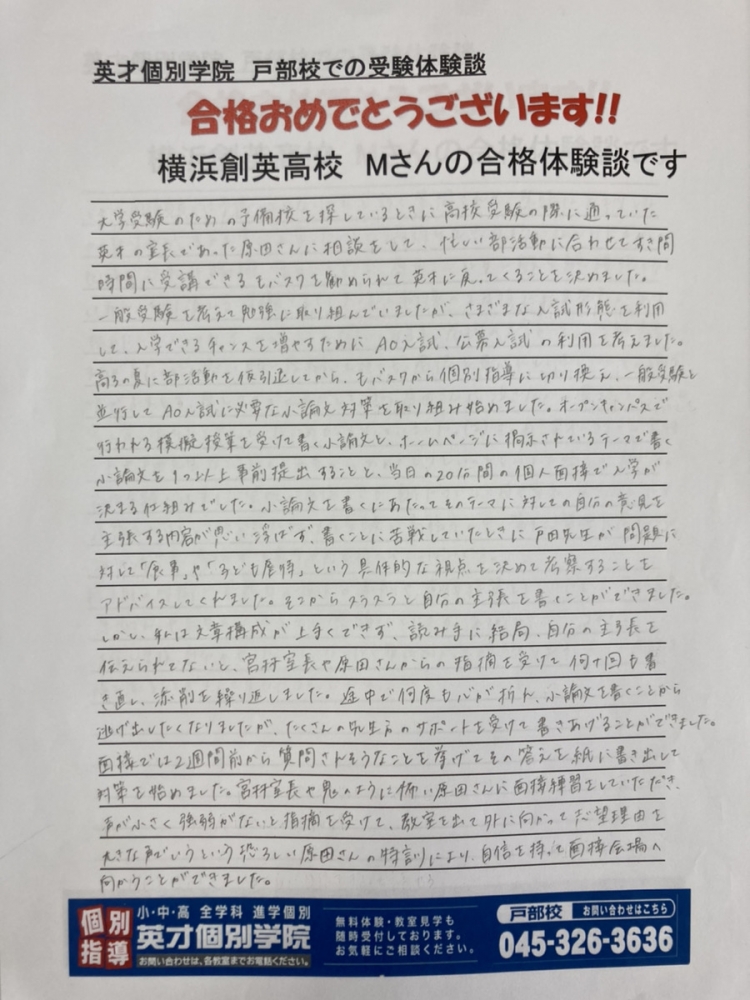 英才個別学院 戸部校での受験体験談
合格おめでとうございます!!
横浜創英高校 Mさんの合格体験談です
大学受験のための予備校を探しているときに高校受験の際に通っていた
英才の室長であった原田さんに相談をして、忙しい部活動に合わせてすき間
時間に受講できるモバスクを勧められて英才に戻ってくることを決めました。
一般受験を考えて勉強に取り組んでいましたが、さまざまな入試形態を利用
して、入学できるチャンスを増やすためにAO入試、公募入試の利用を考えました。
高3の夏に部活動を仮引退してから、モバスクから個別指導に切り換え、一般受験と
並行してAO入試に必要な小論文対策を取り組み始めました。オープンキャンパスで
行われる模擬授業を受けて書く小論文と、ホームページに掲示されているテーマで書く
小論文を1つ以上事前提出することと、当日の20分間の個人面接で入学が
決まる仕組みでした。小論文を書くにあたってそのテーマに対しての自分の意見を
主張する内容が思い浮ばず、書くことに苦戦していたときに戸田先生が問題に
対して「食事」や「子ども虐待」という具体的な視点を決めて考察することを
アドバイスしてくれました。そこからスラスラと自分の主張を書くことができました。
しかし、私は文章構成が上手くできず、読み手に結局、自分の主張を
伝えられてないと、宮村室長や原田さんからの指摘を受けて何十回も書
き直し、添削を繰り返しました。途中で何度も心が折れ、小論文を書くことから
逃げ出したくなりましたが、たくさんの先生方のサポートを受けて書きあげることができました。
面接では2週間前から質問されそうなことを挙げてその答えを紙に書き出して
対策を始めました。宮村室長や鬼のように怖い原田さんに面接練習をしていただき、
声が小さく強弱がないと指摘を受けて、教室を出て外に向かって志望理由を
大きな声でいうという恐ろしい原田さんの特訓により、自信を持って面接会場へ
向かうことができました。
個別指導
小・中・高 全学科 進学個別
英才個別学院
お問い合わせは、各教室までお電話ください。
無料体験・教室見学も
随時受付しております。
お気軽にご相談ください。
戸部校 お問い合わせはこちら
045-326-3636